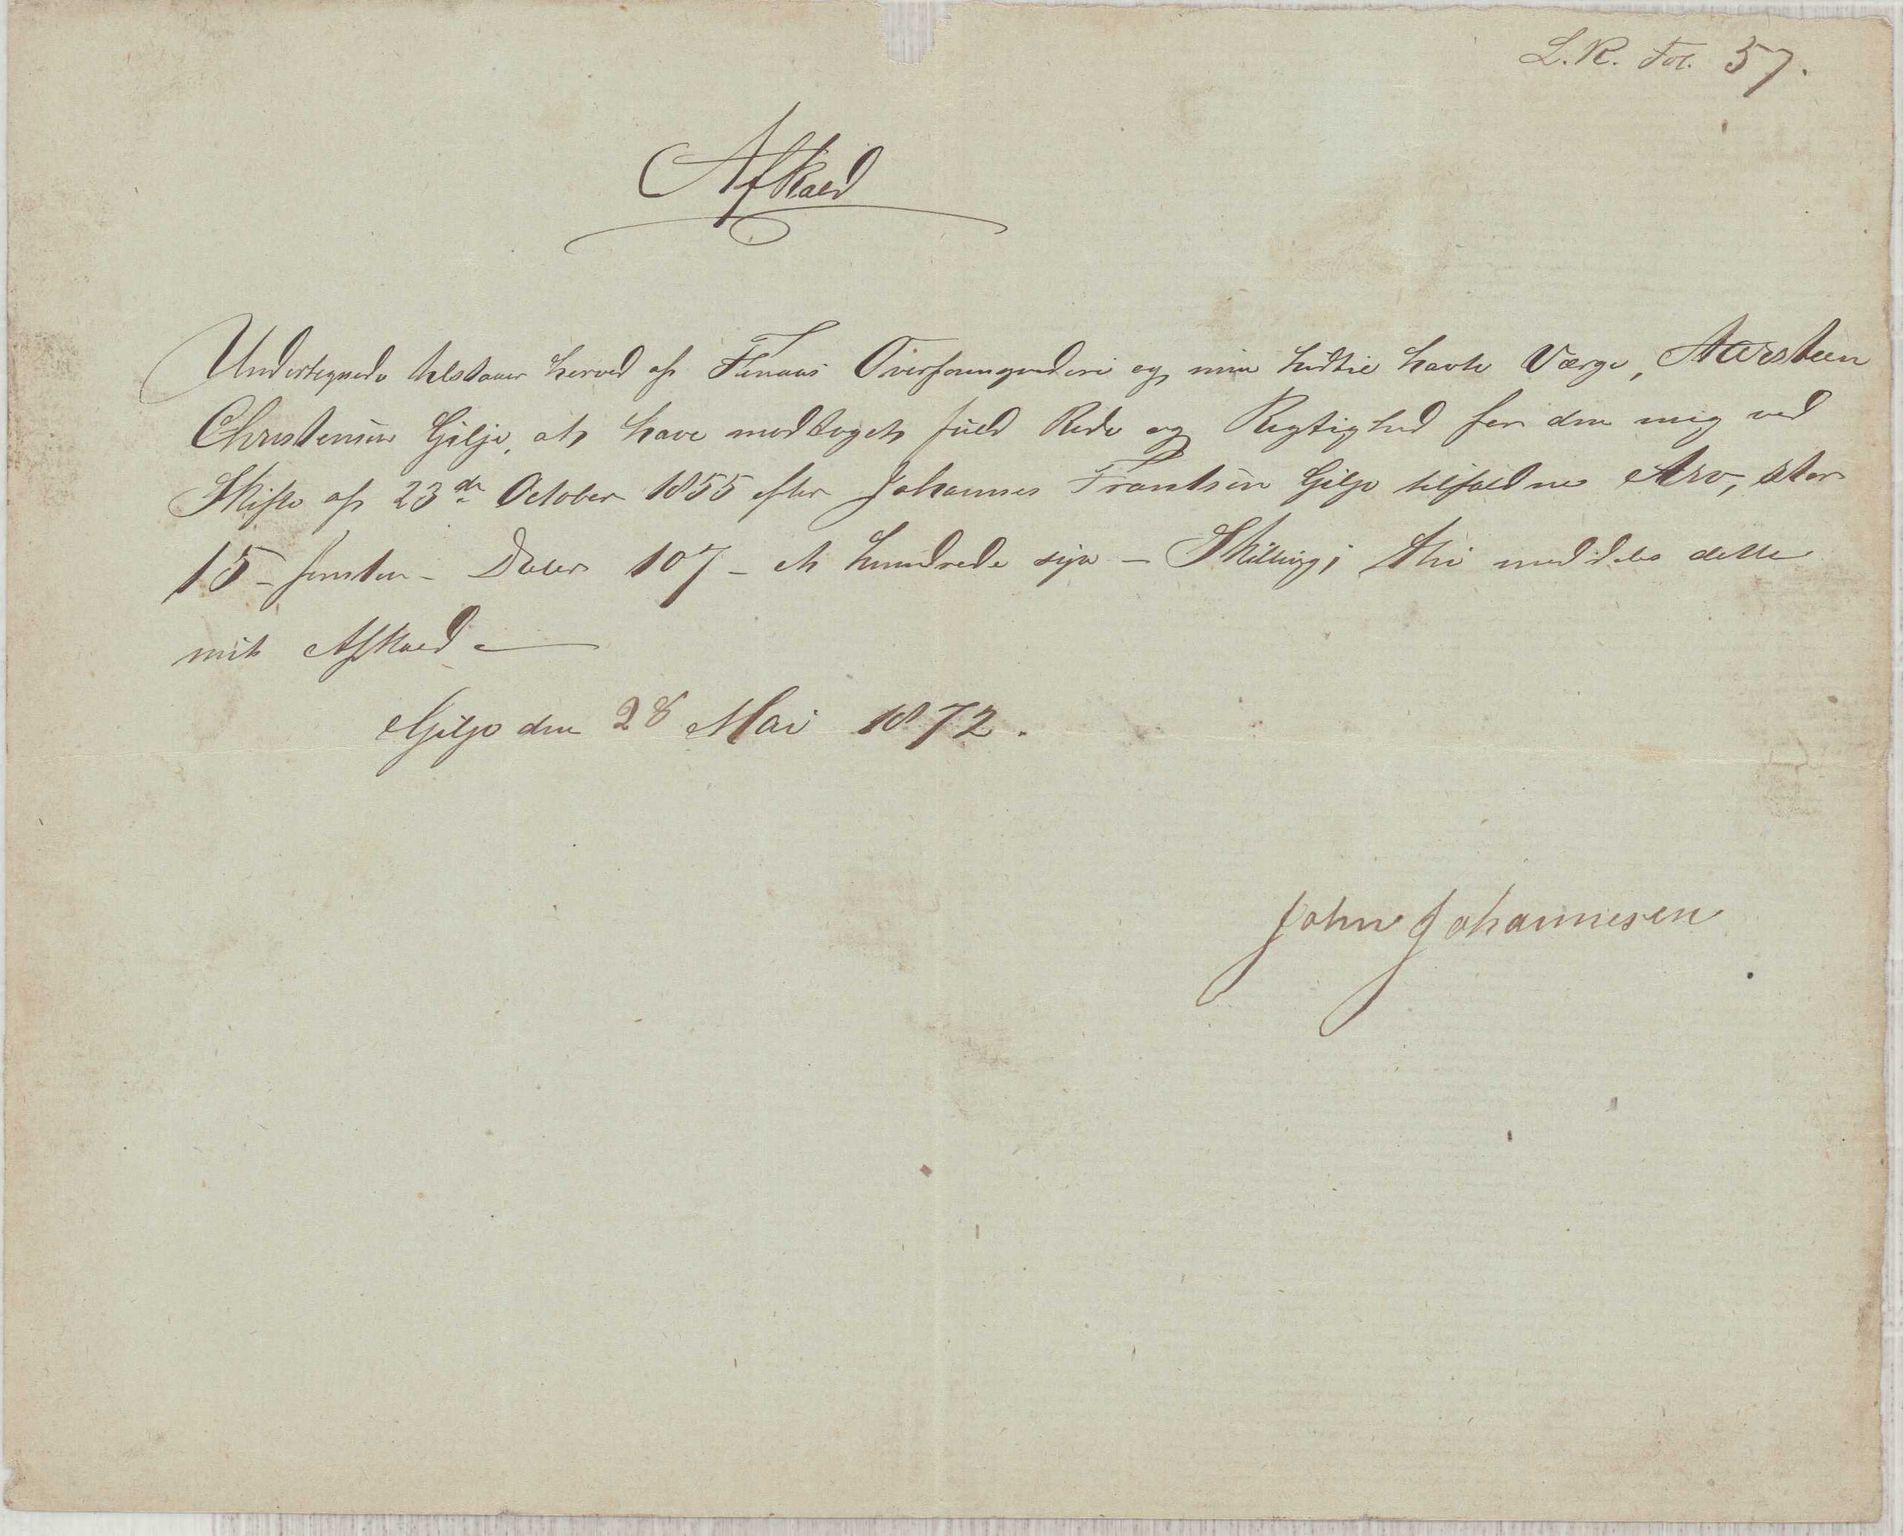 L.R. Fol. 57.
Afkald
Undertegnede tilstaaer herved af Finnaas Overformynderi og min hidtil havte Værge,
Christensen Gilje, at have modtaget fuld Rede og Rigtighed for den mig ved
Skifte af 23de October 1855 efter Johannes Frantsen Gilje tilfaldne Arv, stor
15 – femten – Daler 107 – et hundrede syv – Skilling; thi meddeles dette
mit Afkald –
Gilje den 28 Mai 1872.
John Johannesen